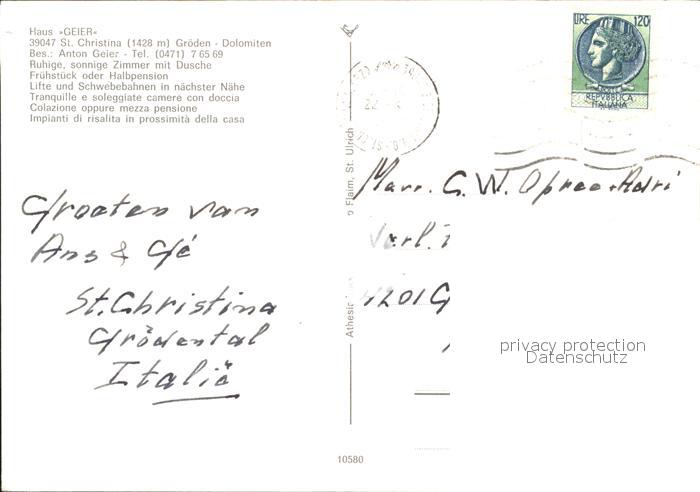 Haus »GEIER«
39047 St. Christina (1428 m) Gröden - Dolomiten
Bes.: Anton Geier - Tel. (0471) 7 65 69
Ruhige, sonnige Zimmer mit Dusche
Frühstück oder Halbpension
Lifte und Schwebebahnen in nächster Nähe
Tranquille e soleggiate camere con doccia
Colazione oppure mezza pensione
Impianti di risalita in prossimità della casa
Groeten van
Ans & Gé
St. Christina
Grödental
Italië
Flaim, St. Ulrich
Athesia
10580
LIRE 120
REPVBBLICA
ITALIANA
22
G. W.
4201 G
privacy protection
Datenschutz